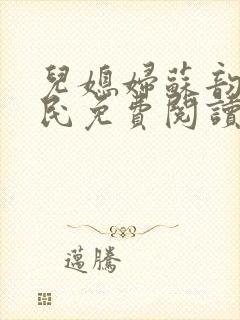 兒媳婦蘇韵
民免費閱讀
邁騰